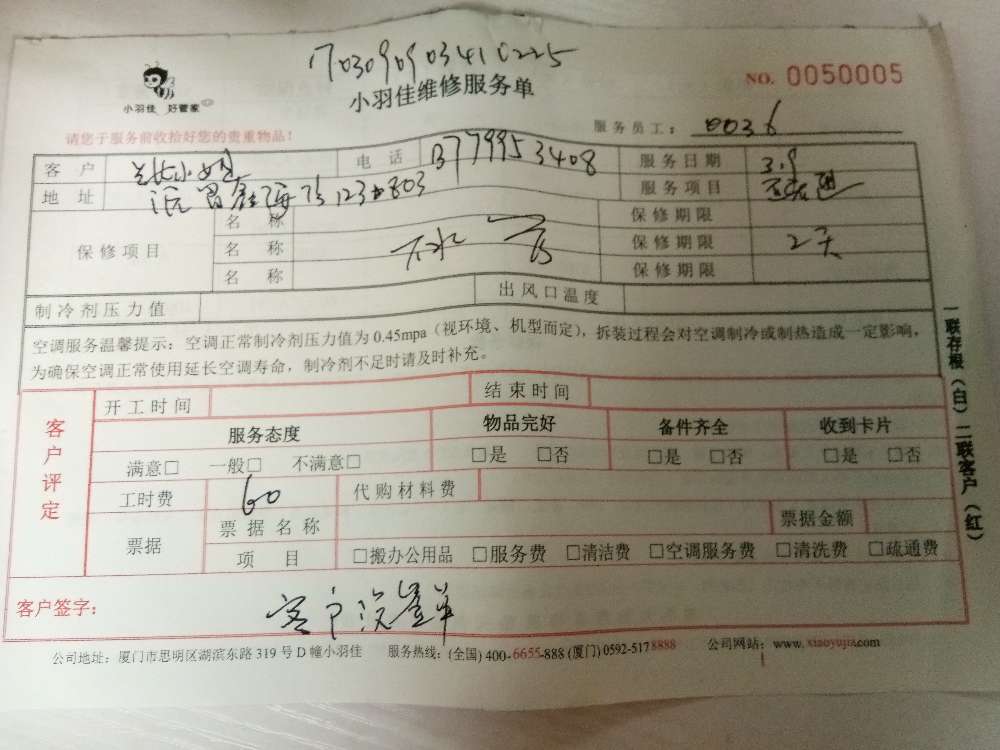 1703090903410225
小羽佳 好管家
小羽佳维修服务单
NO. 0050005
请您于服务前收拾好您的贵重物品！
服务员工： 0036
客户 小姐 电话 13779953408 服务日期 3.9
地址 123 803 服务项目
保修项目 名称 保修期限
名称 下水 保修期限 2天
名称 保修期限
制冷剂压力值 出风口温度
空调服务温馨提示：空调正常制冷剂压力值为 0.45mpa（视环境、机型而定），拆装过程会对空调制冷或制热造成一定影响，
为确保空调正常使用延长空调寿命，制冷剂不足时请及时补充。
客户评定
开工时间 结束时间
服务态度 物品完好 备件齐全 收到卡片
满意□ 一般□ 不满意□ □是 □否 □是 □否 □是 □否
工时费 60 代购材料费
票据 票据名称 票据金额
项目 □搬办公用品 □服务费 □清洁费 □空调服务费 □清洗费 □疏通费
客户签字： 客户没签单
公司地址：厦门市思明区湖滨东路 319 号 D 幢小羽佳 服务热线：(全国) 400-6655-888 (厦门) 0592-5178888 公司网站：www.xiaoyujia.com
一联存根（白）二联客户（红）